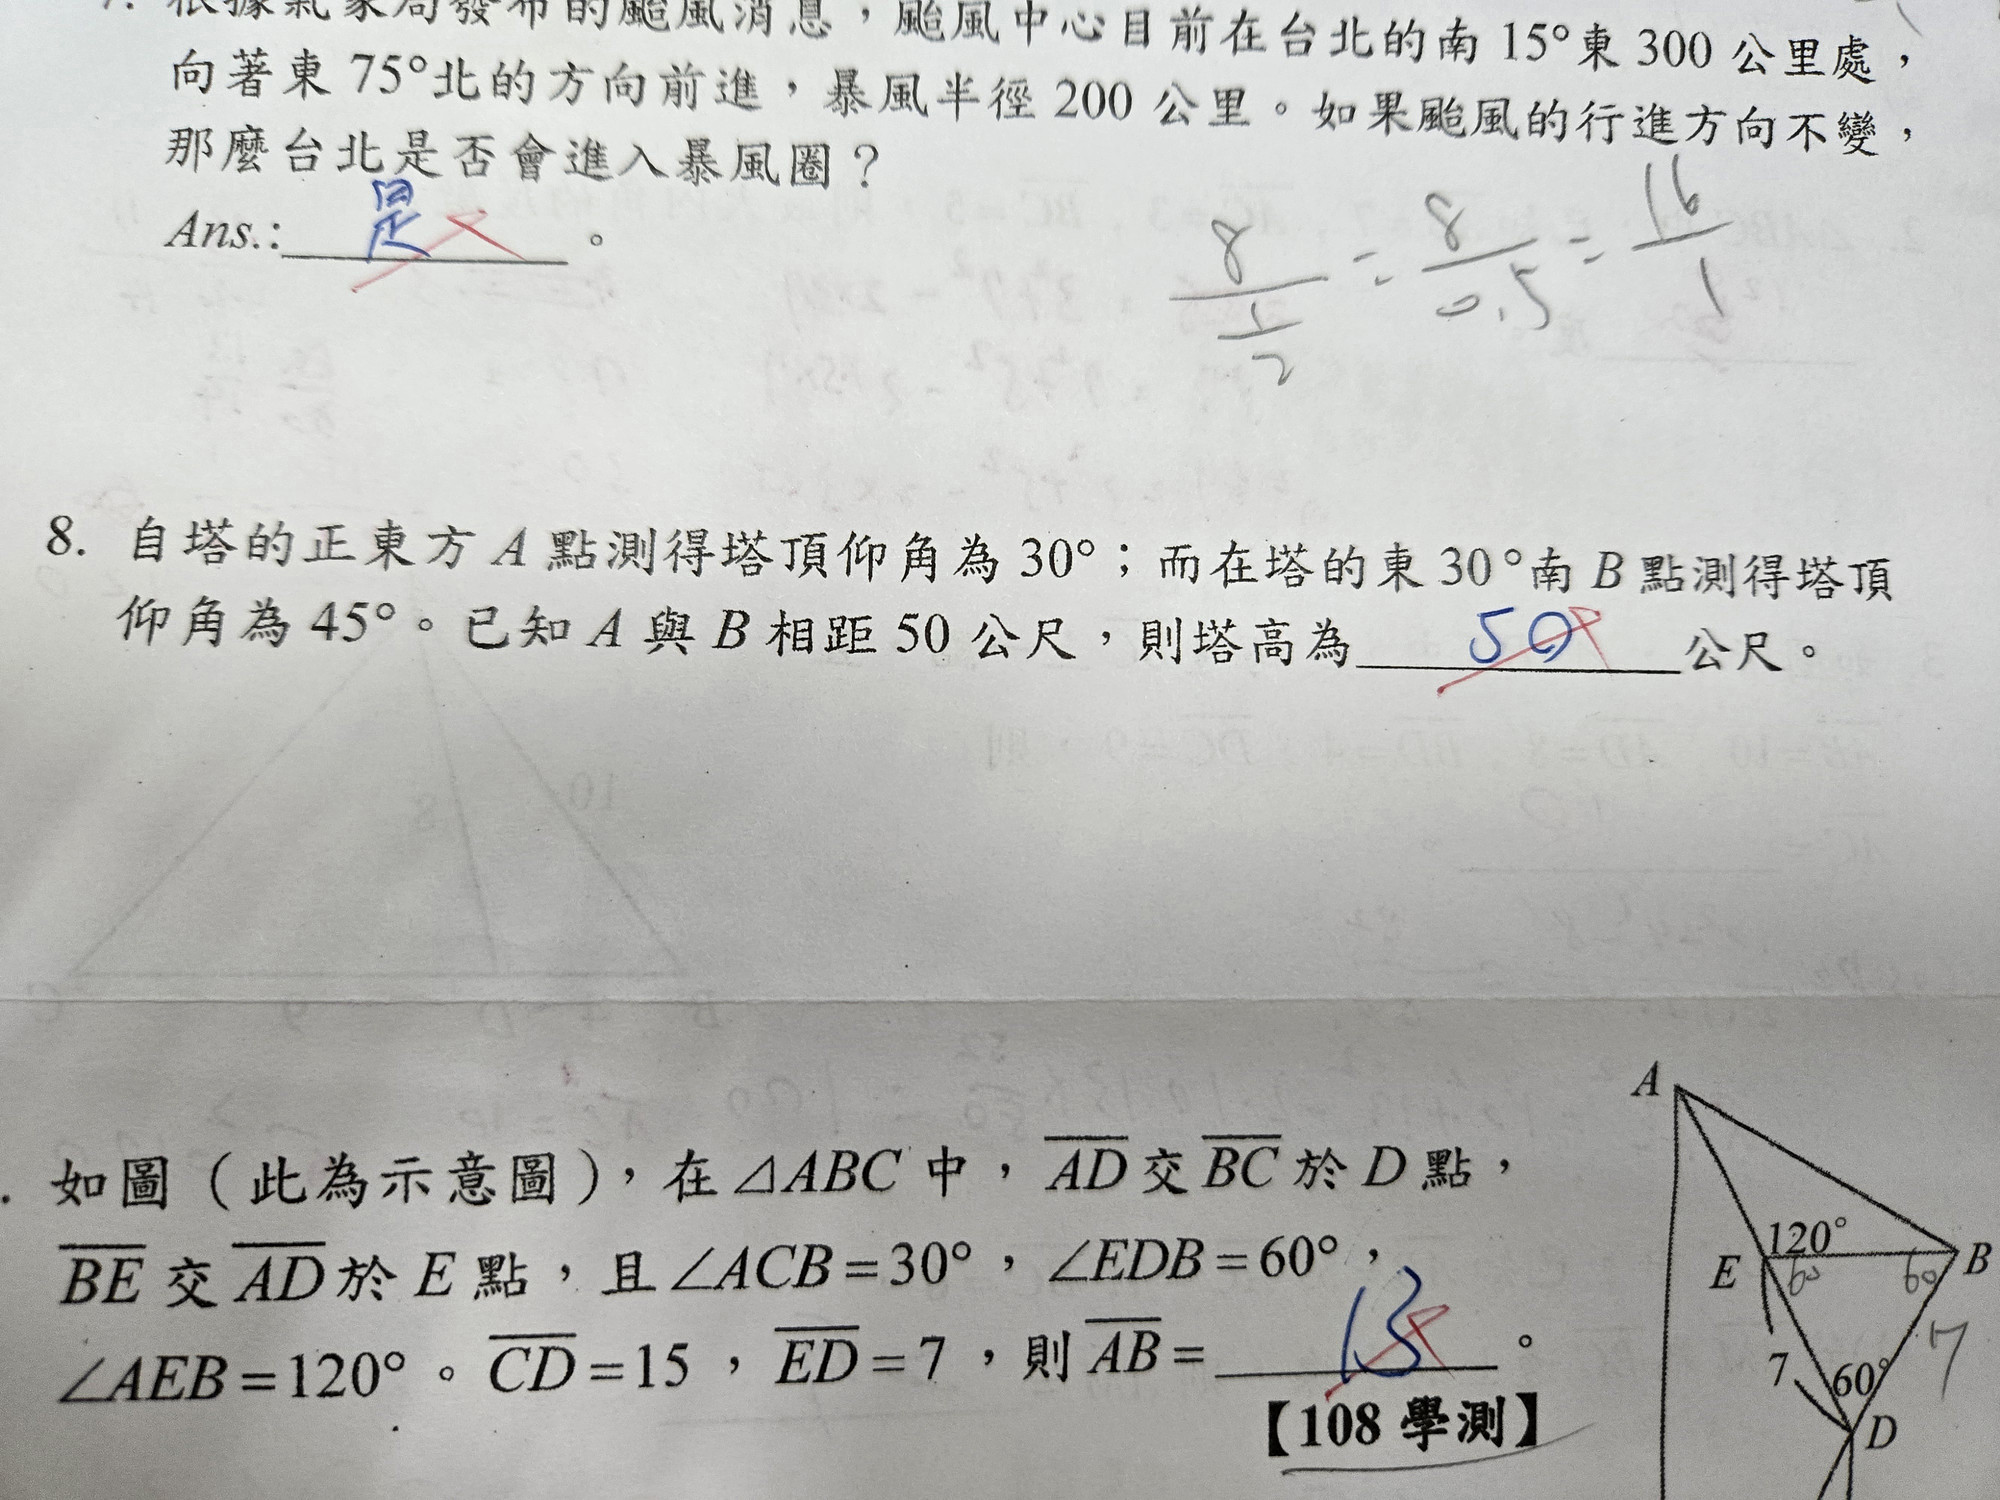 7. 根據氣象局發布的颱風消息，颱風中心目前在台北的南 15°東 300 公里處，
向著東 75°北的方向前進，暴風半徑 200 公里。如果颱風的行進方向不變，
那麼台北是否會進入暴風圈？
Ans.: 是 。
8/(1/2) = 8/0.5 = 16/1
8. 自塔的正東方 A 點測得塔頂仰角為 30°；而在塔的東 30°南 B 點測得塔頂
仰角為 45°。已知 A 與 B 相距 50 公尺，則塔高為 50 公尺。
. 如圖（此為示意圖），在 △ABC 中，AD 交 BC 於 D 點，
BE 交 AD 於 E 點，且 ∠ACB = 30°，∠EDB = 60°，
∠AEB = 120°。CD = 15，ED = 7，則 AB = 13 。
【108 學測】
A
120°
E
60
60
B
7
7
60°
D